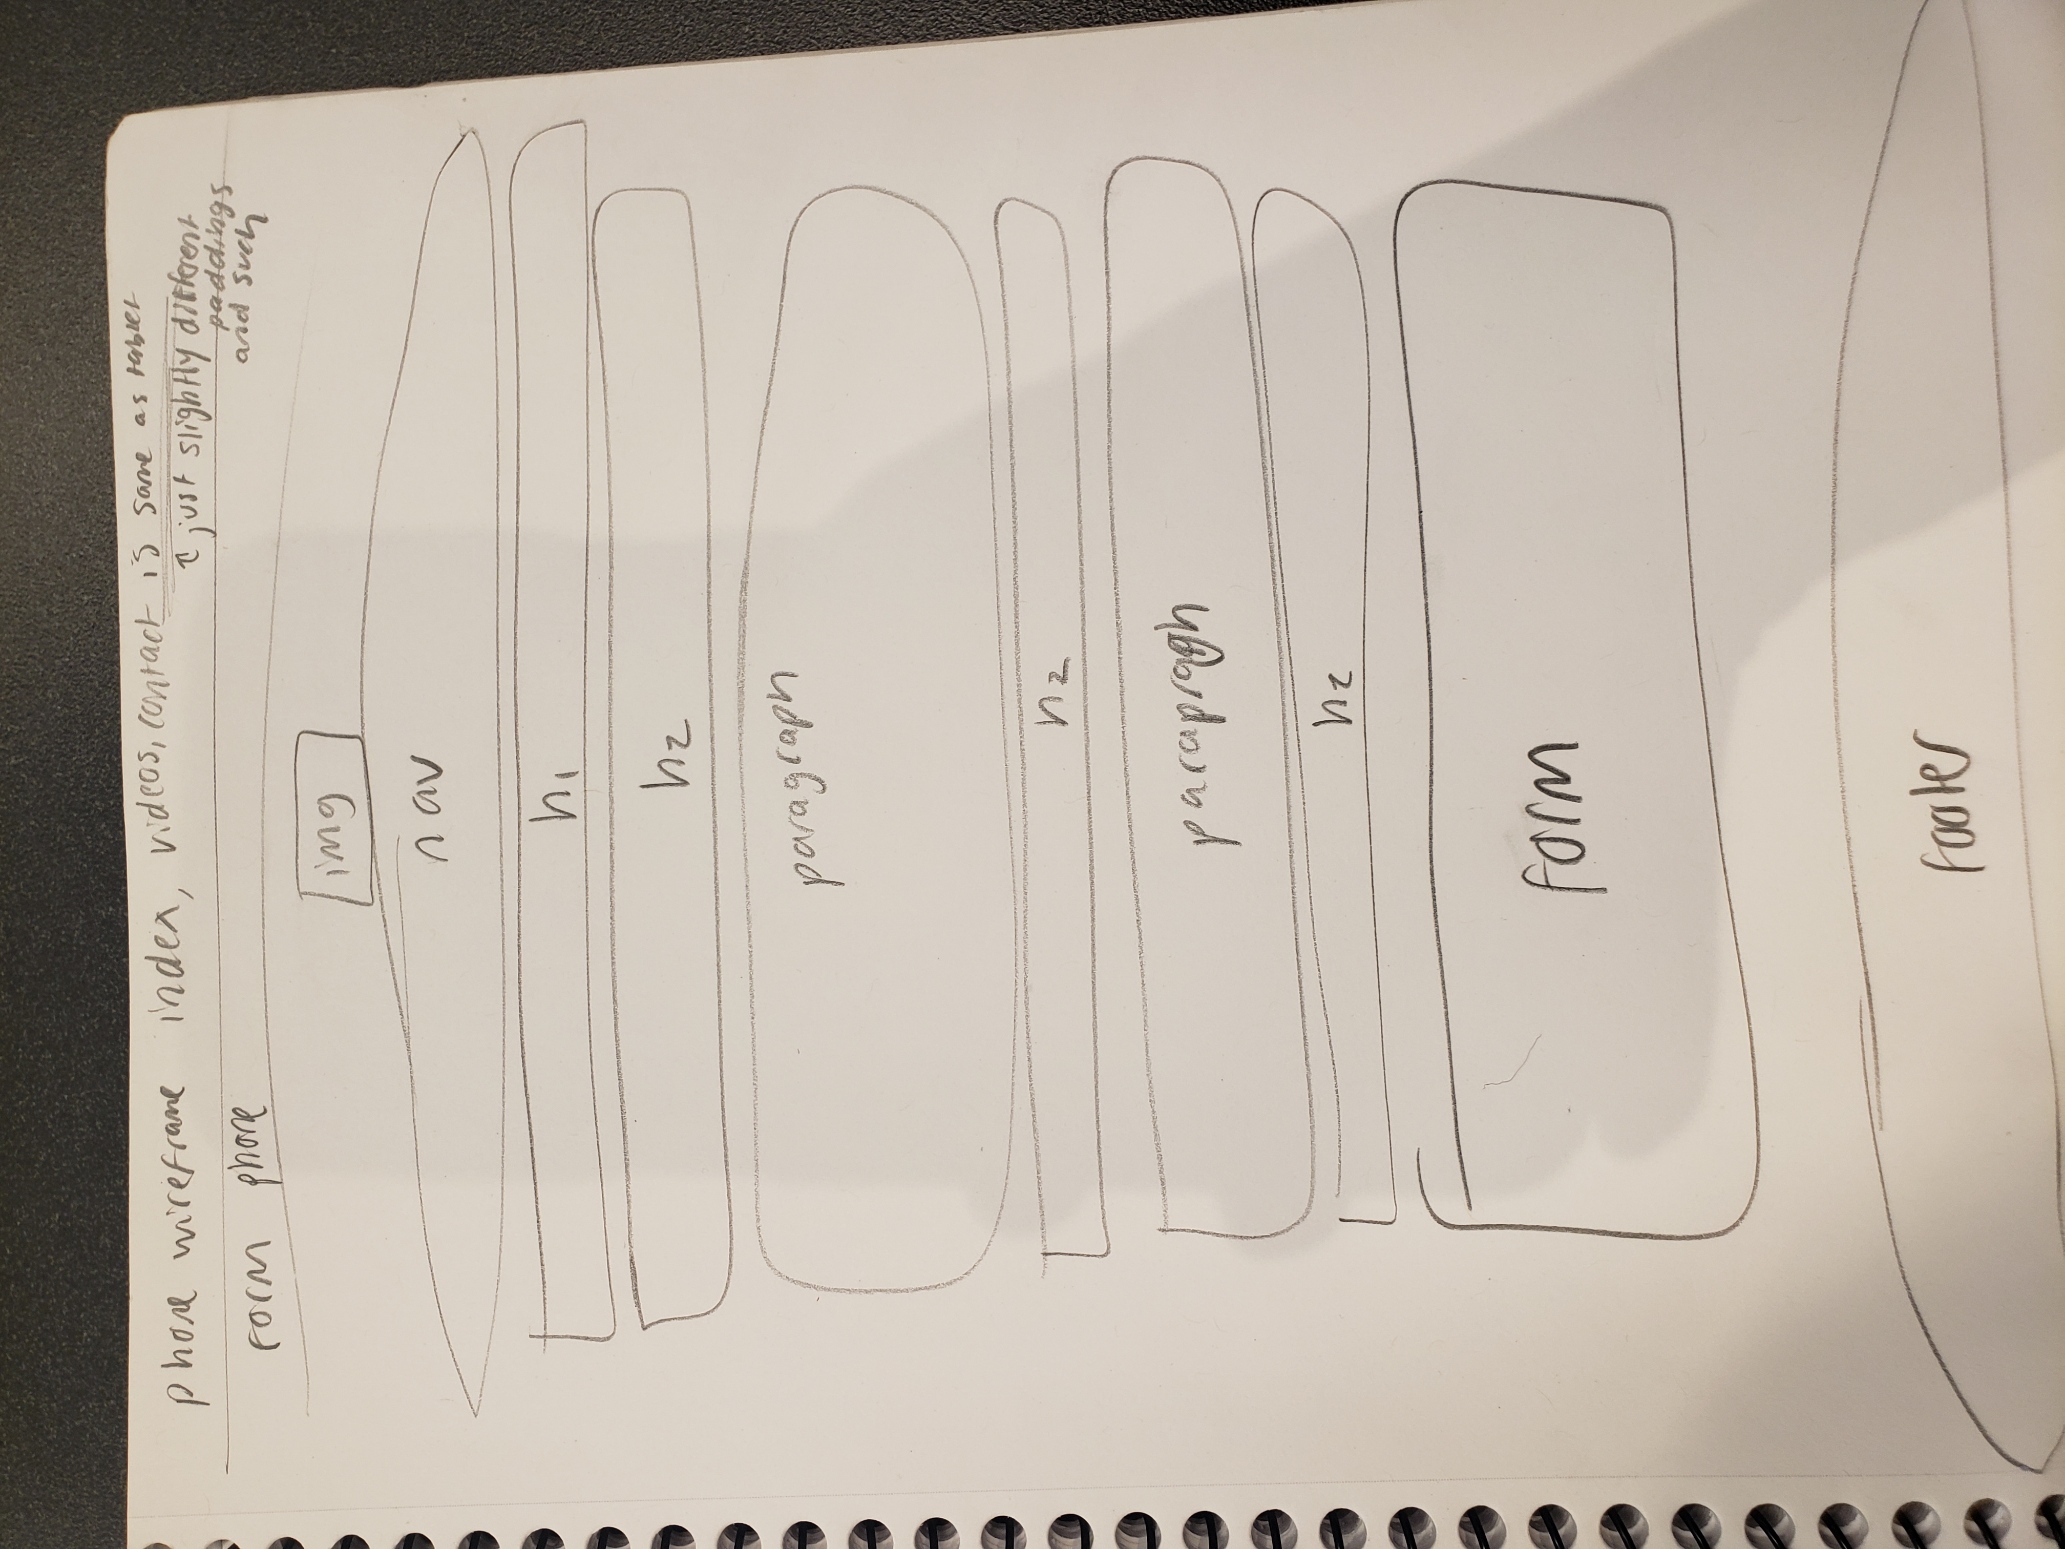 phone wireframe index, videos, contact is same as tablet
↑ just slightly different
paddings
and such
form phone
img
nav
h1
h2
paragraph
h2
parapragh
h2
form
footer